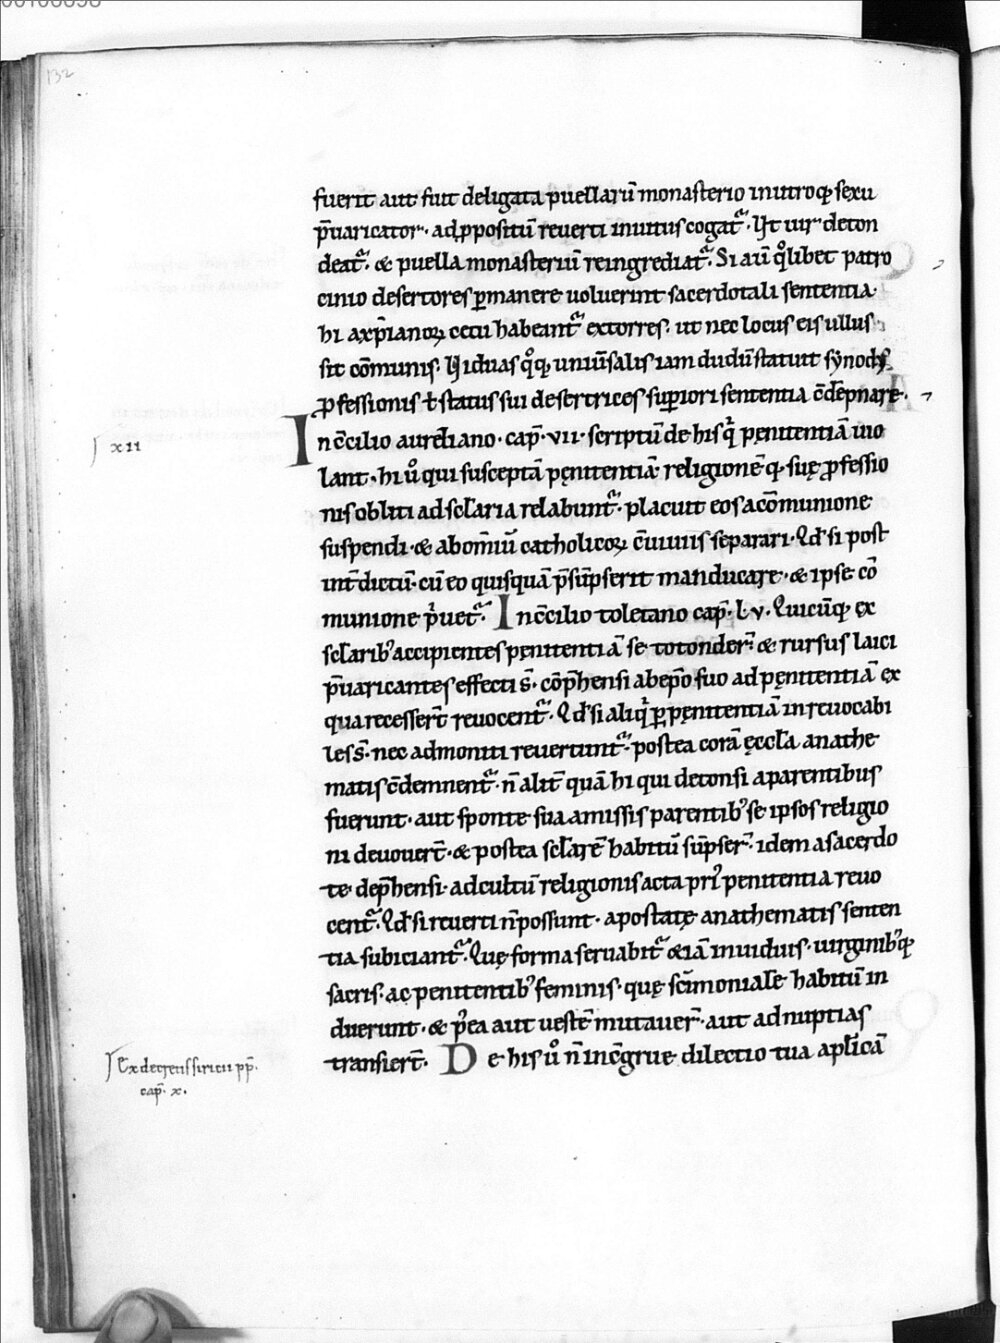 132
fuerit aut fuit deligata puellarū monasterio in utroq; sexu
p̄uaricator· ad p̱positū reuerti inuitus cogat᷑· Vt uir deton
deat᷑· & puella monasteriū reingrediat᷑· Si aū q̊libet patro
cinio desertores p̱manere uoluerint sacerdotali sententia·
hi a xp̄ianoꝝ cetu habeant᷑ extorres· ut nec locus eis ullus
sit cōmunis· Viduas q̊q; uniūsalis iam dudū statuit synodus
ꝓfessionis ł status sui desertrices sup̱iori sententia c̄dēpnare·
In c̄cilio aureliano· cap̄· vii· scriptū de his q̄ penitentiā uio
lant· hi ů qui susceptā pęnitentiā religionēq; suę ꝓfessio
nis obliti ad sclaria relabunt᷑· placuit eos a cōmunione
suspendi· & abomiū catholicoꝝ c̄uiuiis separari· Qd̄ si post
int̄dictū· cū eo quisquā p̄sūpserit manducare· & ipse cō
munione p̄uet᷑· In c̄cilio toletano cap̄· l·v· Quicūq; ex
sclarib; accipientes pęnitentiā se totonder̄· & rursus laici
p̄uaricantes effecti s̄· cōp̄hensi ab ep̄o suo ad pęnitentiā ex
qua recesser̄t reuocent᷑· Qd̄ si aliq̄ p̱ pęnitentiā in reuocabi
les s̄· nec admoniti reuertunt᷑· postea corā ęccl̄a anathe
matis c̄demnent᷑· n̄ alit̄ quā hi qui detonsi a parentibus
fuerunt· aut sponte sua amissis parentib; se ipsos religio
ni deuouer̄t· & postea sclarē habitū sūpser̄· idem a sacerdo
te dep̄hensi· ad cultū religionis acta pri᷒ penitentia reuo
cent᷑· Qd̄ si reuerti n̄ possunt· apostatę anathematis senten
tia subiciant᷑· Quę forma seruabit᷑ &iā in uiduis· uirginib;q;
sacris· ac penitentib; feminis· quę sc̄imonialē habitū in
duerunt· & p᷒ea aut uestē mutauer̄· aut ad nuptias
transier̄t· De his ů n̄ inc̄grue dilectio tua apl̄icā
xii
Ex decretis siricii pp̄·
cap̄· x·